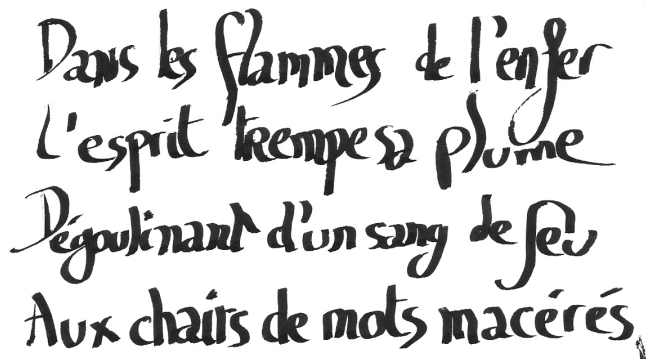 Dans les flammes de l'enfer
L'esprit trempe sa plume
Dégoulinant d'un sang de feu
Aux chairs de mots macérés